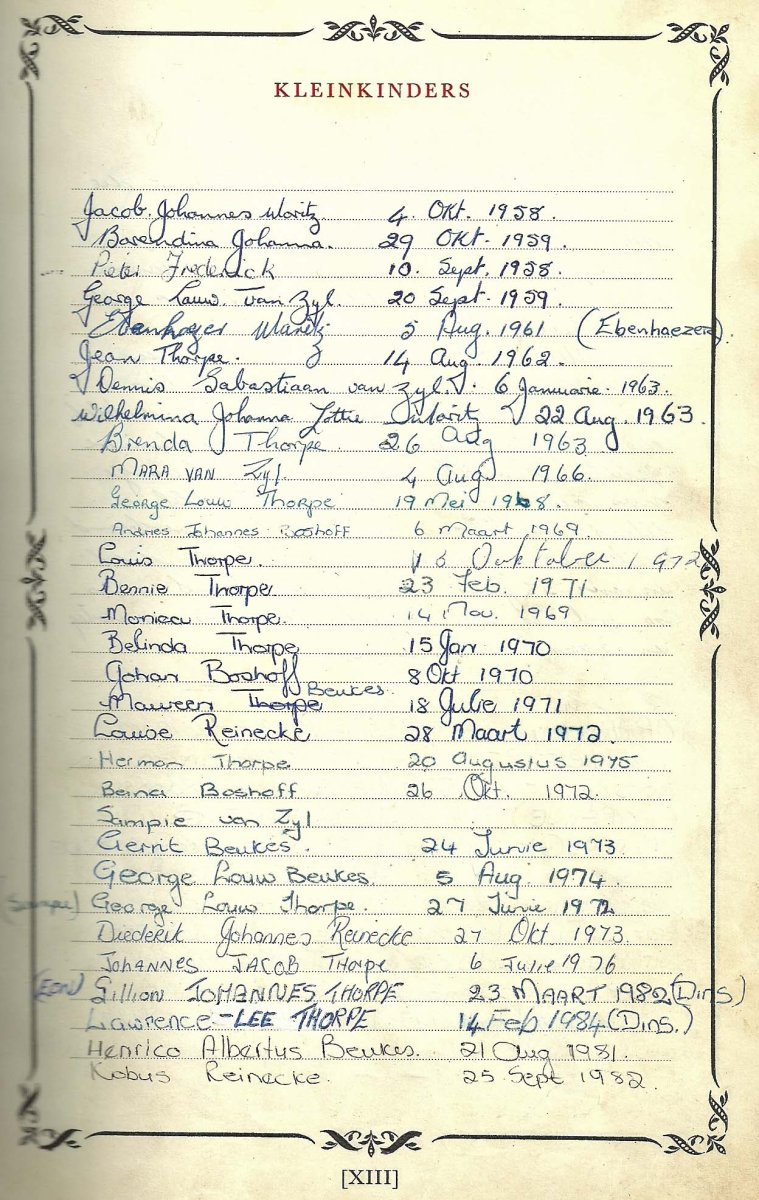 KLEINKINDERS
Jacob Johannes Maritz 4 Okt. 1958.
Barendina Johanna. 29 Okt. 1959.
Pieter Frederick 10. Sept. 1958.
George Louw van Zyl. 20 Sept. 1959.
Ebenhazer Maritz 5 Aug. 1961 (Ebenhaezere).
Jean Thorpe. 14 Aug. 1962.
Dennis Sabastiaan van Zyl. 6 Januarie. 1963.
Wilhelmina Johanna Lottie Maritz 22 Aug. 1963.
Brenda Thorpe. 26 Aug 1963
MARA VAN Zyl. 4 Aug 1966.
George Louw Thorpe 19 Mei 1968.
Andries Johannes Boshoff 6 Maart 1969.
Louis Thorpe. Ooktober 1972
Bennie Thorpe 23 Feb. 1971
Monica Thorpe. 14 Nov. 1969
Belinda Thorpe 15 Jan 1970
Johan Boshoff 8 Okt 1970
Maureen Thorpe Beukes 18 Julie 1971
Louise Reinecke 28 Maart 1972.
Herman Thorpe 20 Augustus 1975
Boshoff 26 Okt. 1972.
Sampie van Zyl
Gerrit Beukes. 24 Junie 1973
George Louw Beukes. 5 Aug. 1974.
(Sampie) George Louw Thorpe. 27 Junie 1972
Diederik Johannes Reinecke 27 Okt 1973.
JOHANNES JACOB Thorpe 6 Julie 1976
(EON) Gillion JOHANNES THORPE 23 MAART 1982 (Dins)
Lawrence-LEE THORPE 14 Feb 1984 (Dins.)
Henrico Albertus Beukes. 21 Aug 1981.
Kobus Reinecke. 25 Sept 1982.
[XIII]